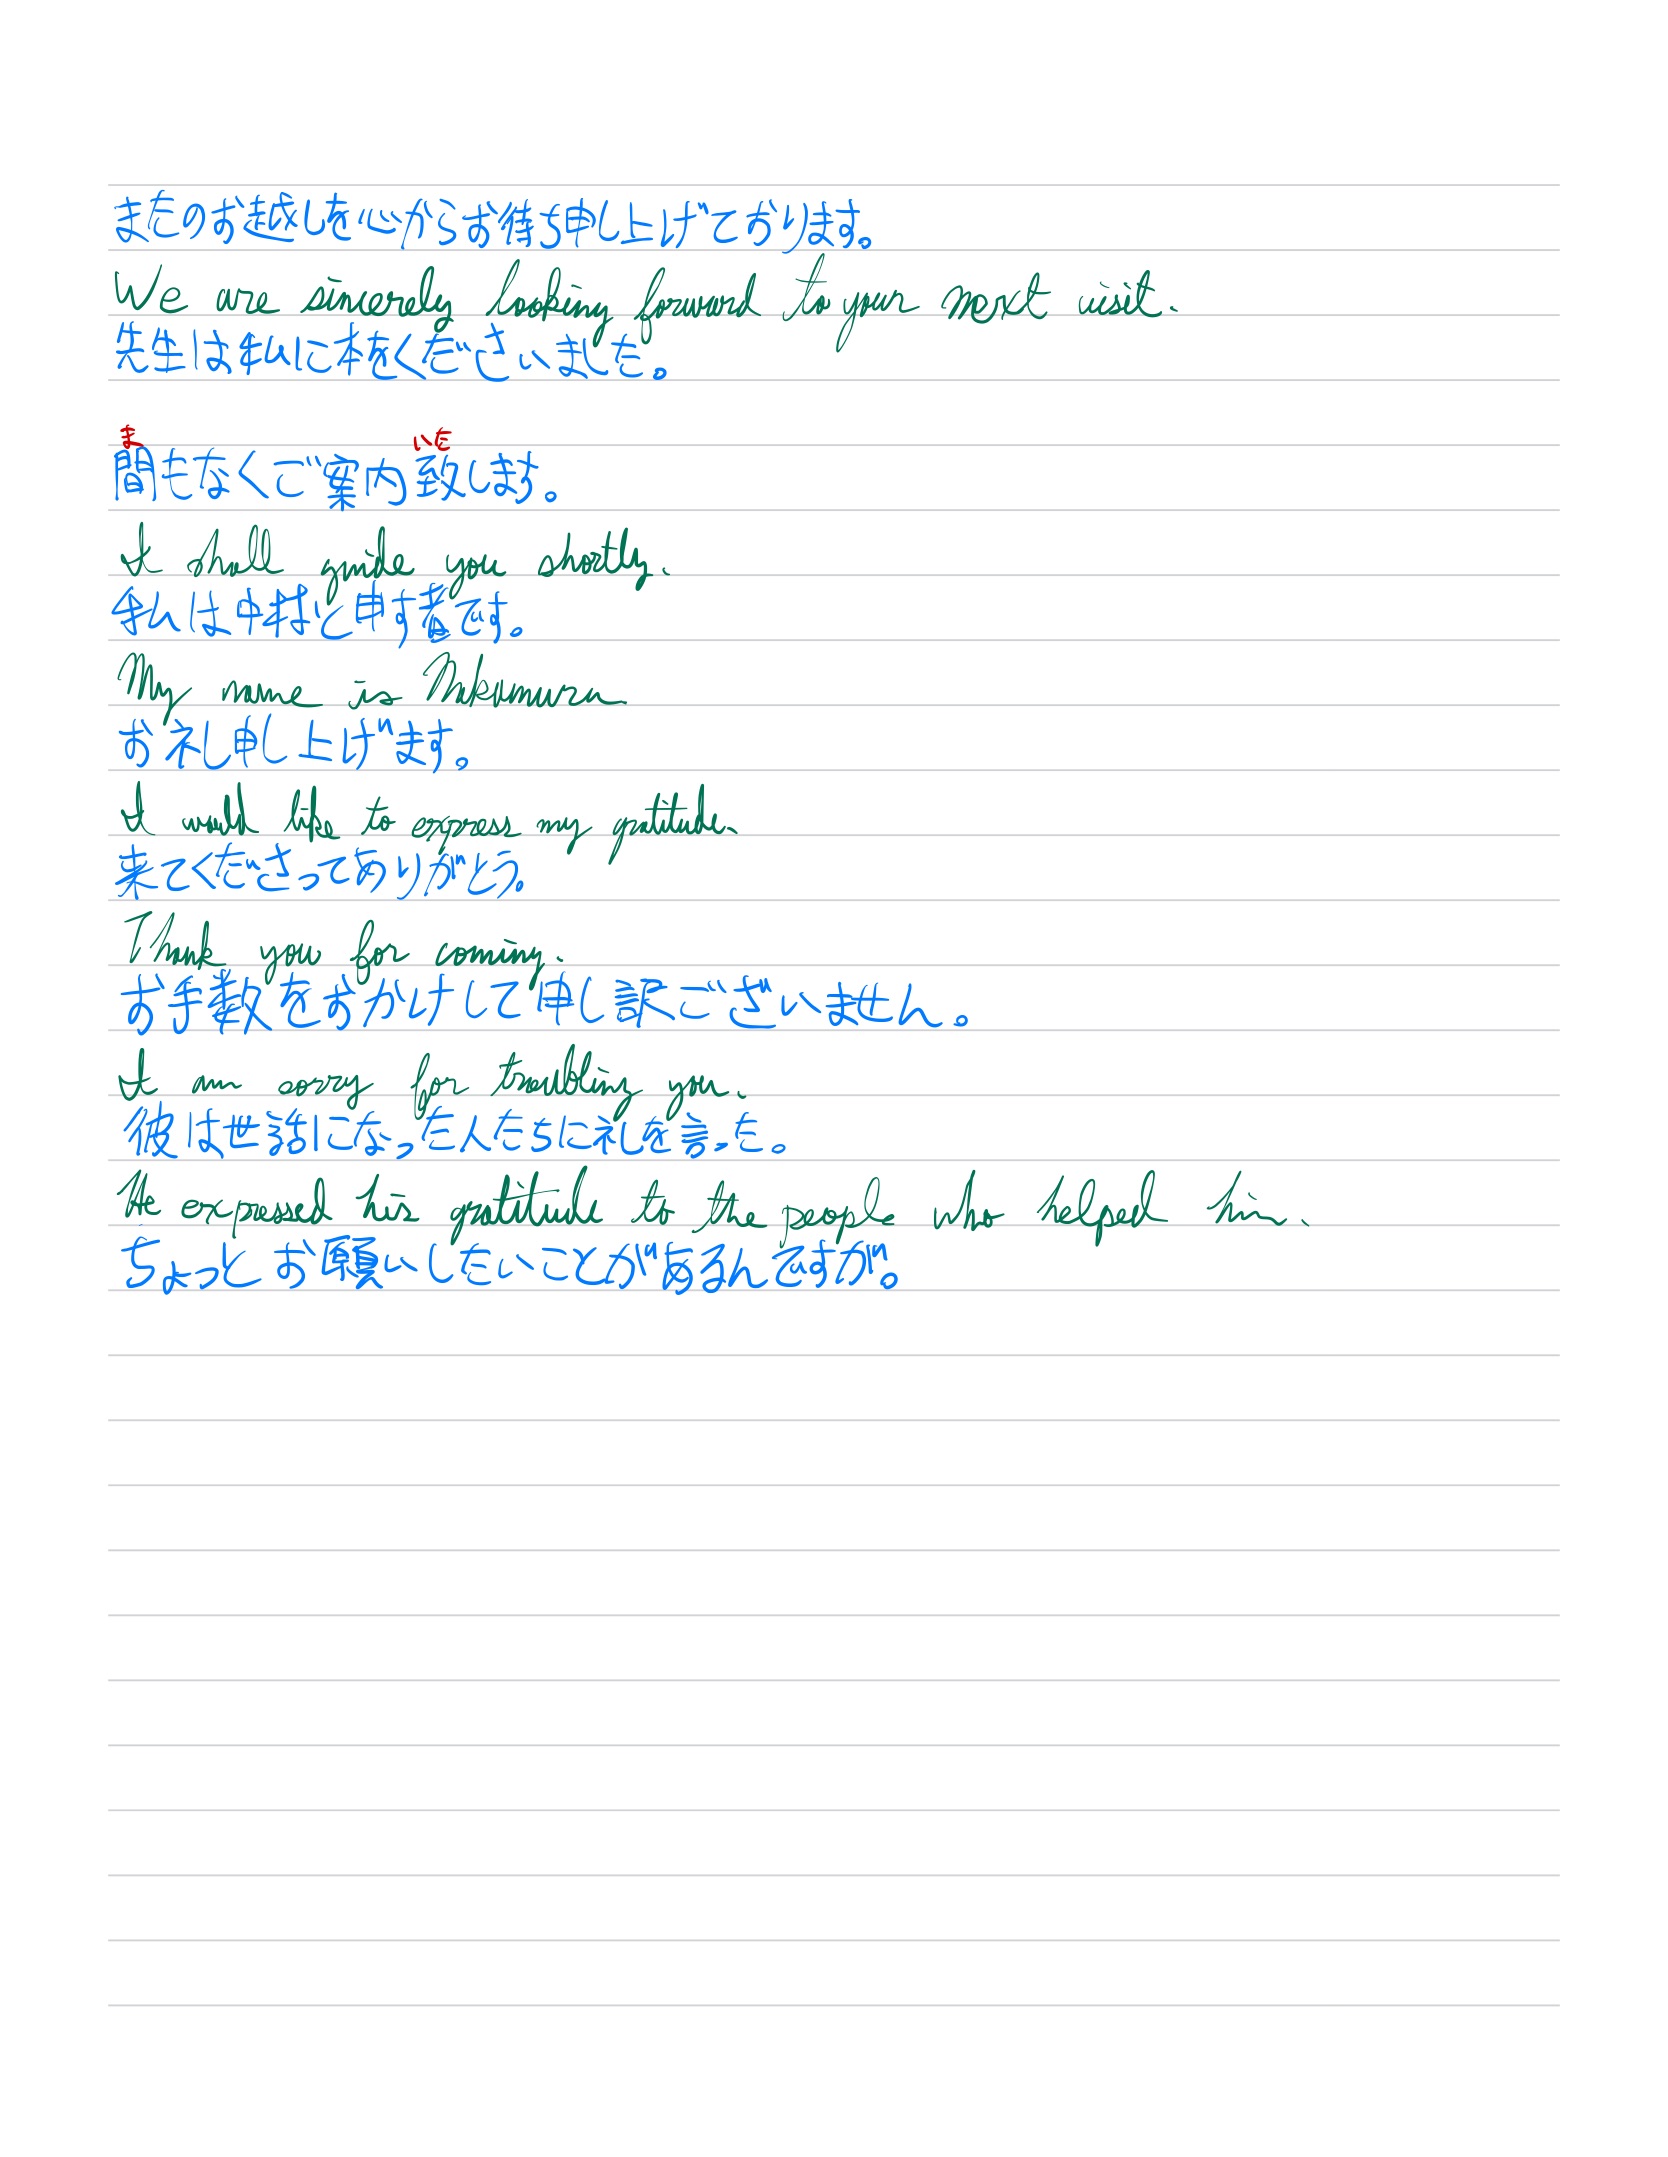 またのお越しを心からお待ち申し上げております。
We are sincerely looking forward to your next visit.
先生は私に本をくださいました。
ま いた
間もなくご案内致します。
I shall guide you shortly.
私は中村と申す者です。
My name is Nakamura
お礼申し上げます。
I would like to express my gratitude.
来てくださってありがとう。
Thank you for coming.
お手数をおかけして申し訳ございません。
I am sorry for troubling you.
彼は世話になった人たちに礼を言った。
He expressed his gratitude to the people who helped him.
ちょっとお願いしたいことがあるんですが。